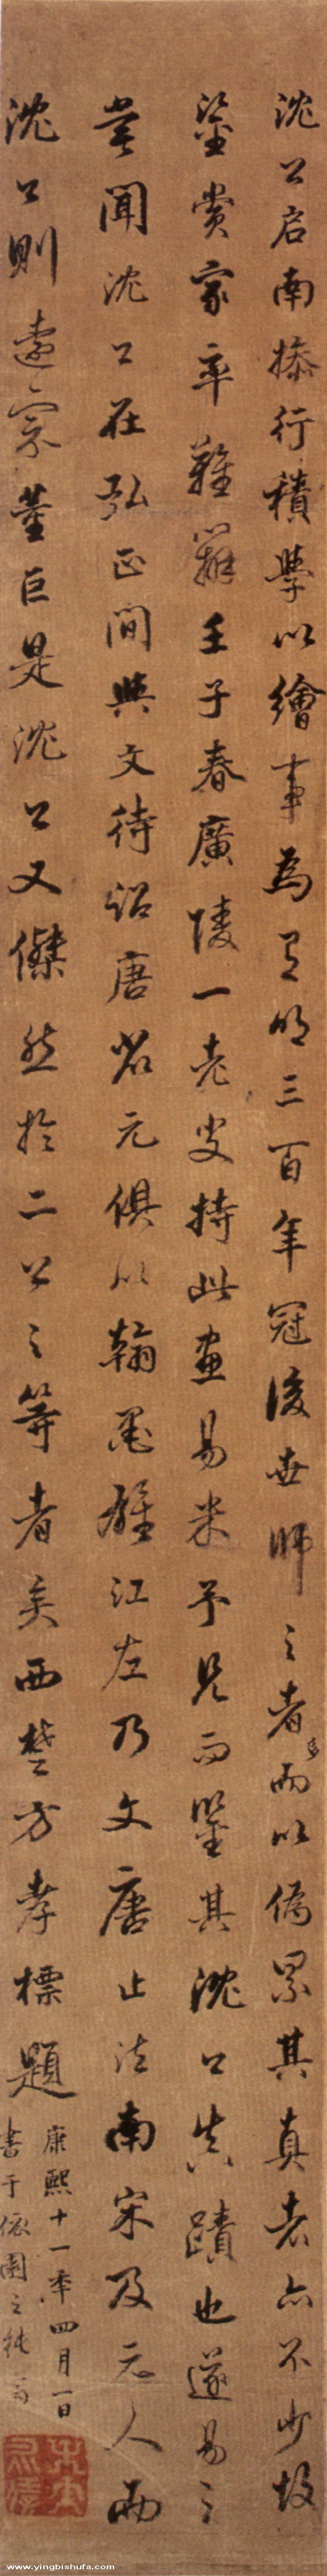 沈公启南操行積學以繪事為有明三百年冠後世師之者多而以偽累其真者亦不少故
鉴賞家率難辨壬子春廣陵一老叟持此畫易米予見而鑒其沈公真蹟也遂易之
嘗聞沈公在弘正間與文待詔唐解元俱以翰墨雄江左乃文唐止法南宋及元人而
沈公則遠宗董巨是沈公又傑然於二公之等者矣西楚方孝標題
康熙十一年四月一日
書于依園之純
www.yingbishufa.com